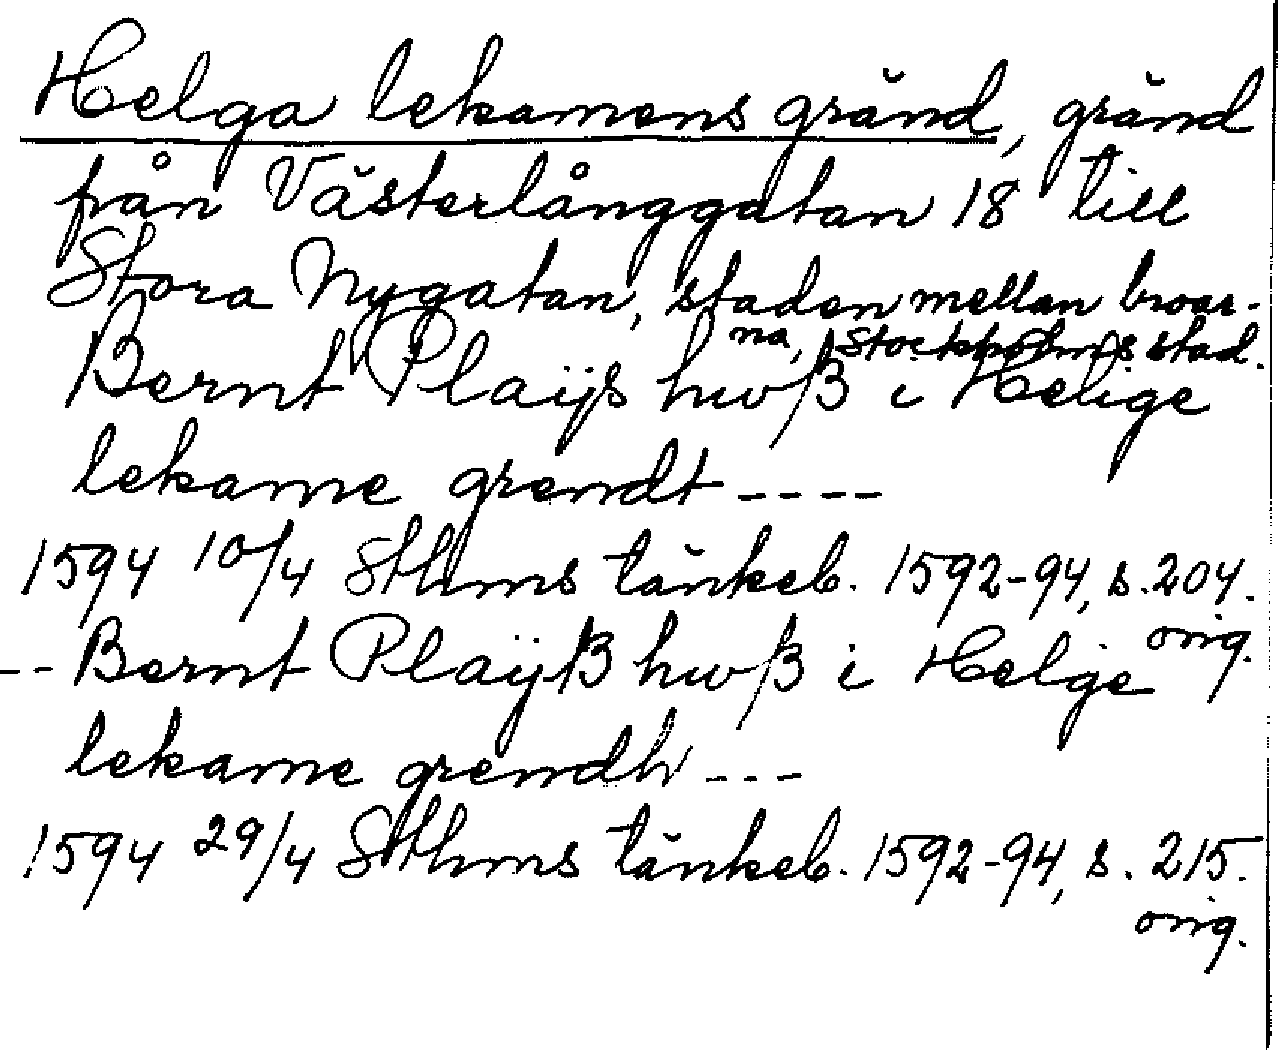 Helga lekamens gränd, gränd
från Västerlånggatan 18 till
Stora Nygatan, staden mellan broar-
na, Stockholms stad.
Bernt Plaijs hwß i Helige
lekame grendt ----
1594 10/4 Sthms tänkeb. 1592-94, s. 204.
orig.
-- Bernt Plaijß hwß i Helge
lekame grendh ---
1594 29/4 Sthms tänkeb. 1592-94, s. 215.
orig.